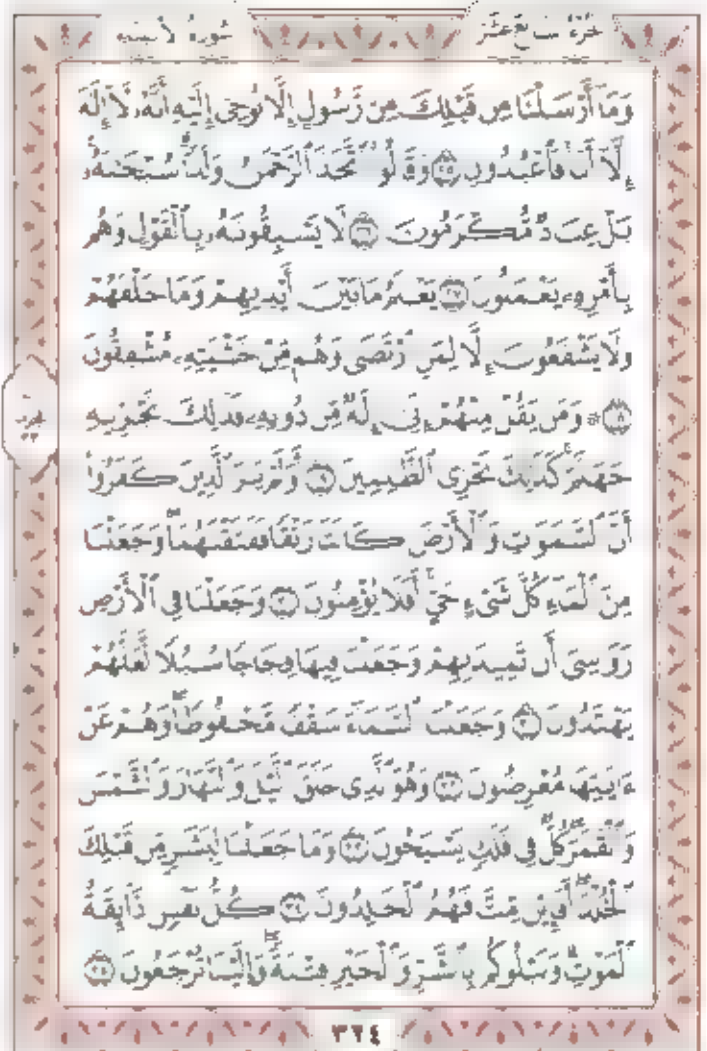 الجزء السابع عشر سورة الأنبياء
وَمَا أَرْسَلْنَا مِن قَبْلِكَ مِن رَّسُولٍ إِلَّا نُوحِي إِلَيْهِ أَنَّهُ لَا إِلَٰهَ
إِلَّا أَنَا فَاعْبُدُونِ ٢٥ وَقَالُوا اتَّخَذَ الرَّحْمَٰنُ وَلَدًا سُبْحَانَهُ
بَلْ عِبَادٌ مُّكْرَمُونَ ٢٦ لَا يَسْبِقُونَهُ بِالْقَوْلِ وَهُم
بِأَمْرِهِ يَعْمَلُونَ ٢٧ يَعْلَمُ مَا بَيْنَ أَيْدِيهِمْ وَمَا خَلْفَهُمْ
وَلَا يَشْفَعُونَ إِلَّا لِمَنِ ارْتَضَىٰ وَهُم مِّنْ خَشْيَتِهِ مُشْفِقُونَ
٢٨ ۞ وَمَن يَقُلْ مِنْهُمْ إِنِّي إِلَٰهٌ مِّن دُونِهِ فَذَٰلِكَ نَجْزِيهِ
جَهَنَّمَ كَذَٰلِكَ نَجْزِي الظَّالِمِينَ ٢٩ أَوَلَمْ يَرَ الَّذِينَ كَفَرُوا
أَنَّ السَّمَاوَاتِ وَالْأَرْضَ كَانَتَا رَتْقًا فَفَتَقْنَاهُمَا وَجَعَلْنَا
مِنَ الْمَاءِ كُلَّ شَيْءٍ حَيٍّ أَفَلَا يُؤْمِنُونَ ٣٠ وَجَعَلْنَا فِي الْأَرْضِ
رَوَاسِيَ أَن تَمِيدَ بِهِمْ وَجَعَلْنَا فِيهَا فِجَاجًا سُبُلًا لَّعَلَّهُمْ
يَهْتَدُونَ ٣١ وَجَعَلْنَا السَّمَاءَ سَقْفًا مَّحْفُوظًا وَهُمْ عَنْ
آيَاتِهَا مُعْرِضُونَ ٣٢ وَهُوَ الَّذِي خَلَقَ اللَّيْلَ وَالنَّهَارَ وَالشَّمْسَ
وَالْقَمَرَ كُلٌّ فِي فَلَكٍ يَسْبَحُونَ ٣٣ وَمَا جَعَلْنَا لِبَشَرٍ مِّن قَبْلِكَ
الْخُلْدَ أَفَإِن مِّتَّ فَهُمُ الْخَالِدُونَ ٣٤ كُلُّ نَفْسٍ ذَائِقَةُ
الْمَوْتِ وَنَبْلُوكُم بِالشَّرِّ وَالْخَيْرِ فِتْنَةً وَإِلَيْنَا تُرْجَعُونَ ٣٥
٣٢٤